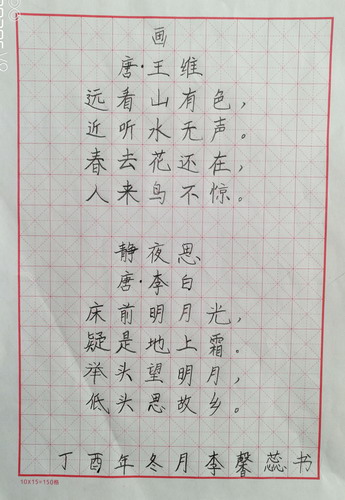 画
唐·王维
远看山有色，
近听水无声。
春去花还在，
人来鸟不惊。
静夜思
唐·李白
床前明月光，
疑是地上霜。
举头望明月，
低头思故乡。
丁酉年冬月李馨蕊书
10X15=150格